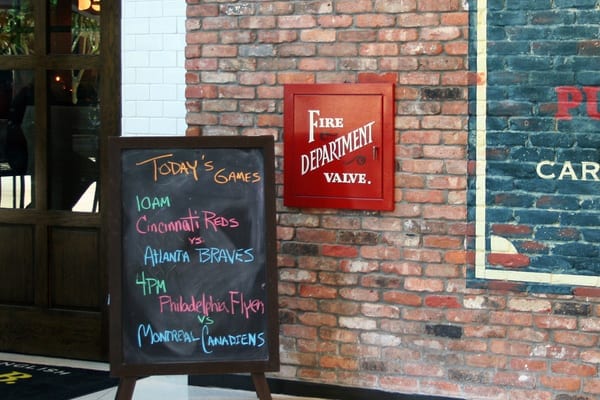 Today's Games
10AM
Cincinnati Reds
vs
Atlanta BRAVES
4PM
Philadelphia Flyer
vs
Montreal Canadiens
FIRE
DEPARTMENT
VALVE.
CAR
ENGLISH